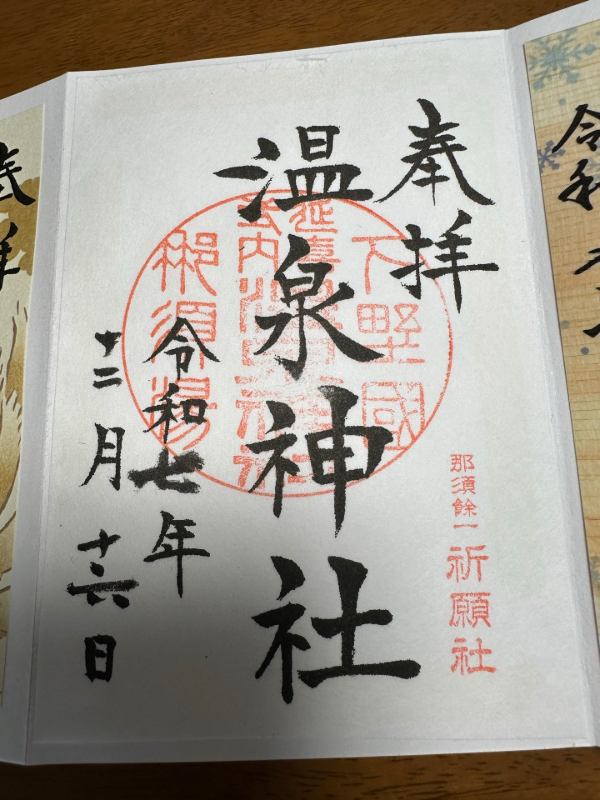 奉拝
温泉神社
令和七年
十二月十六日
下野國
延喜式内温泉神社
那須湯
那須餘一
祈願社
奉拝
令和